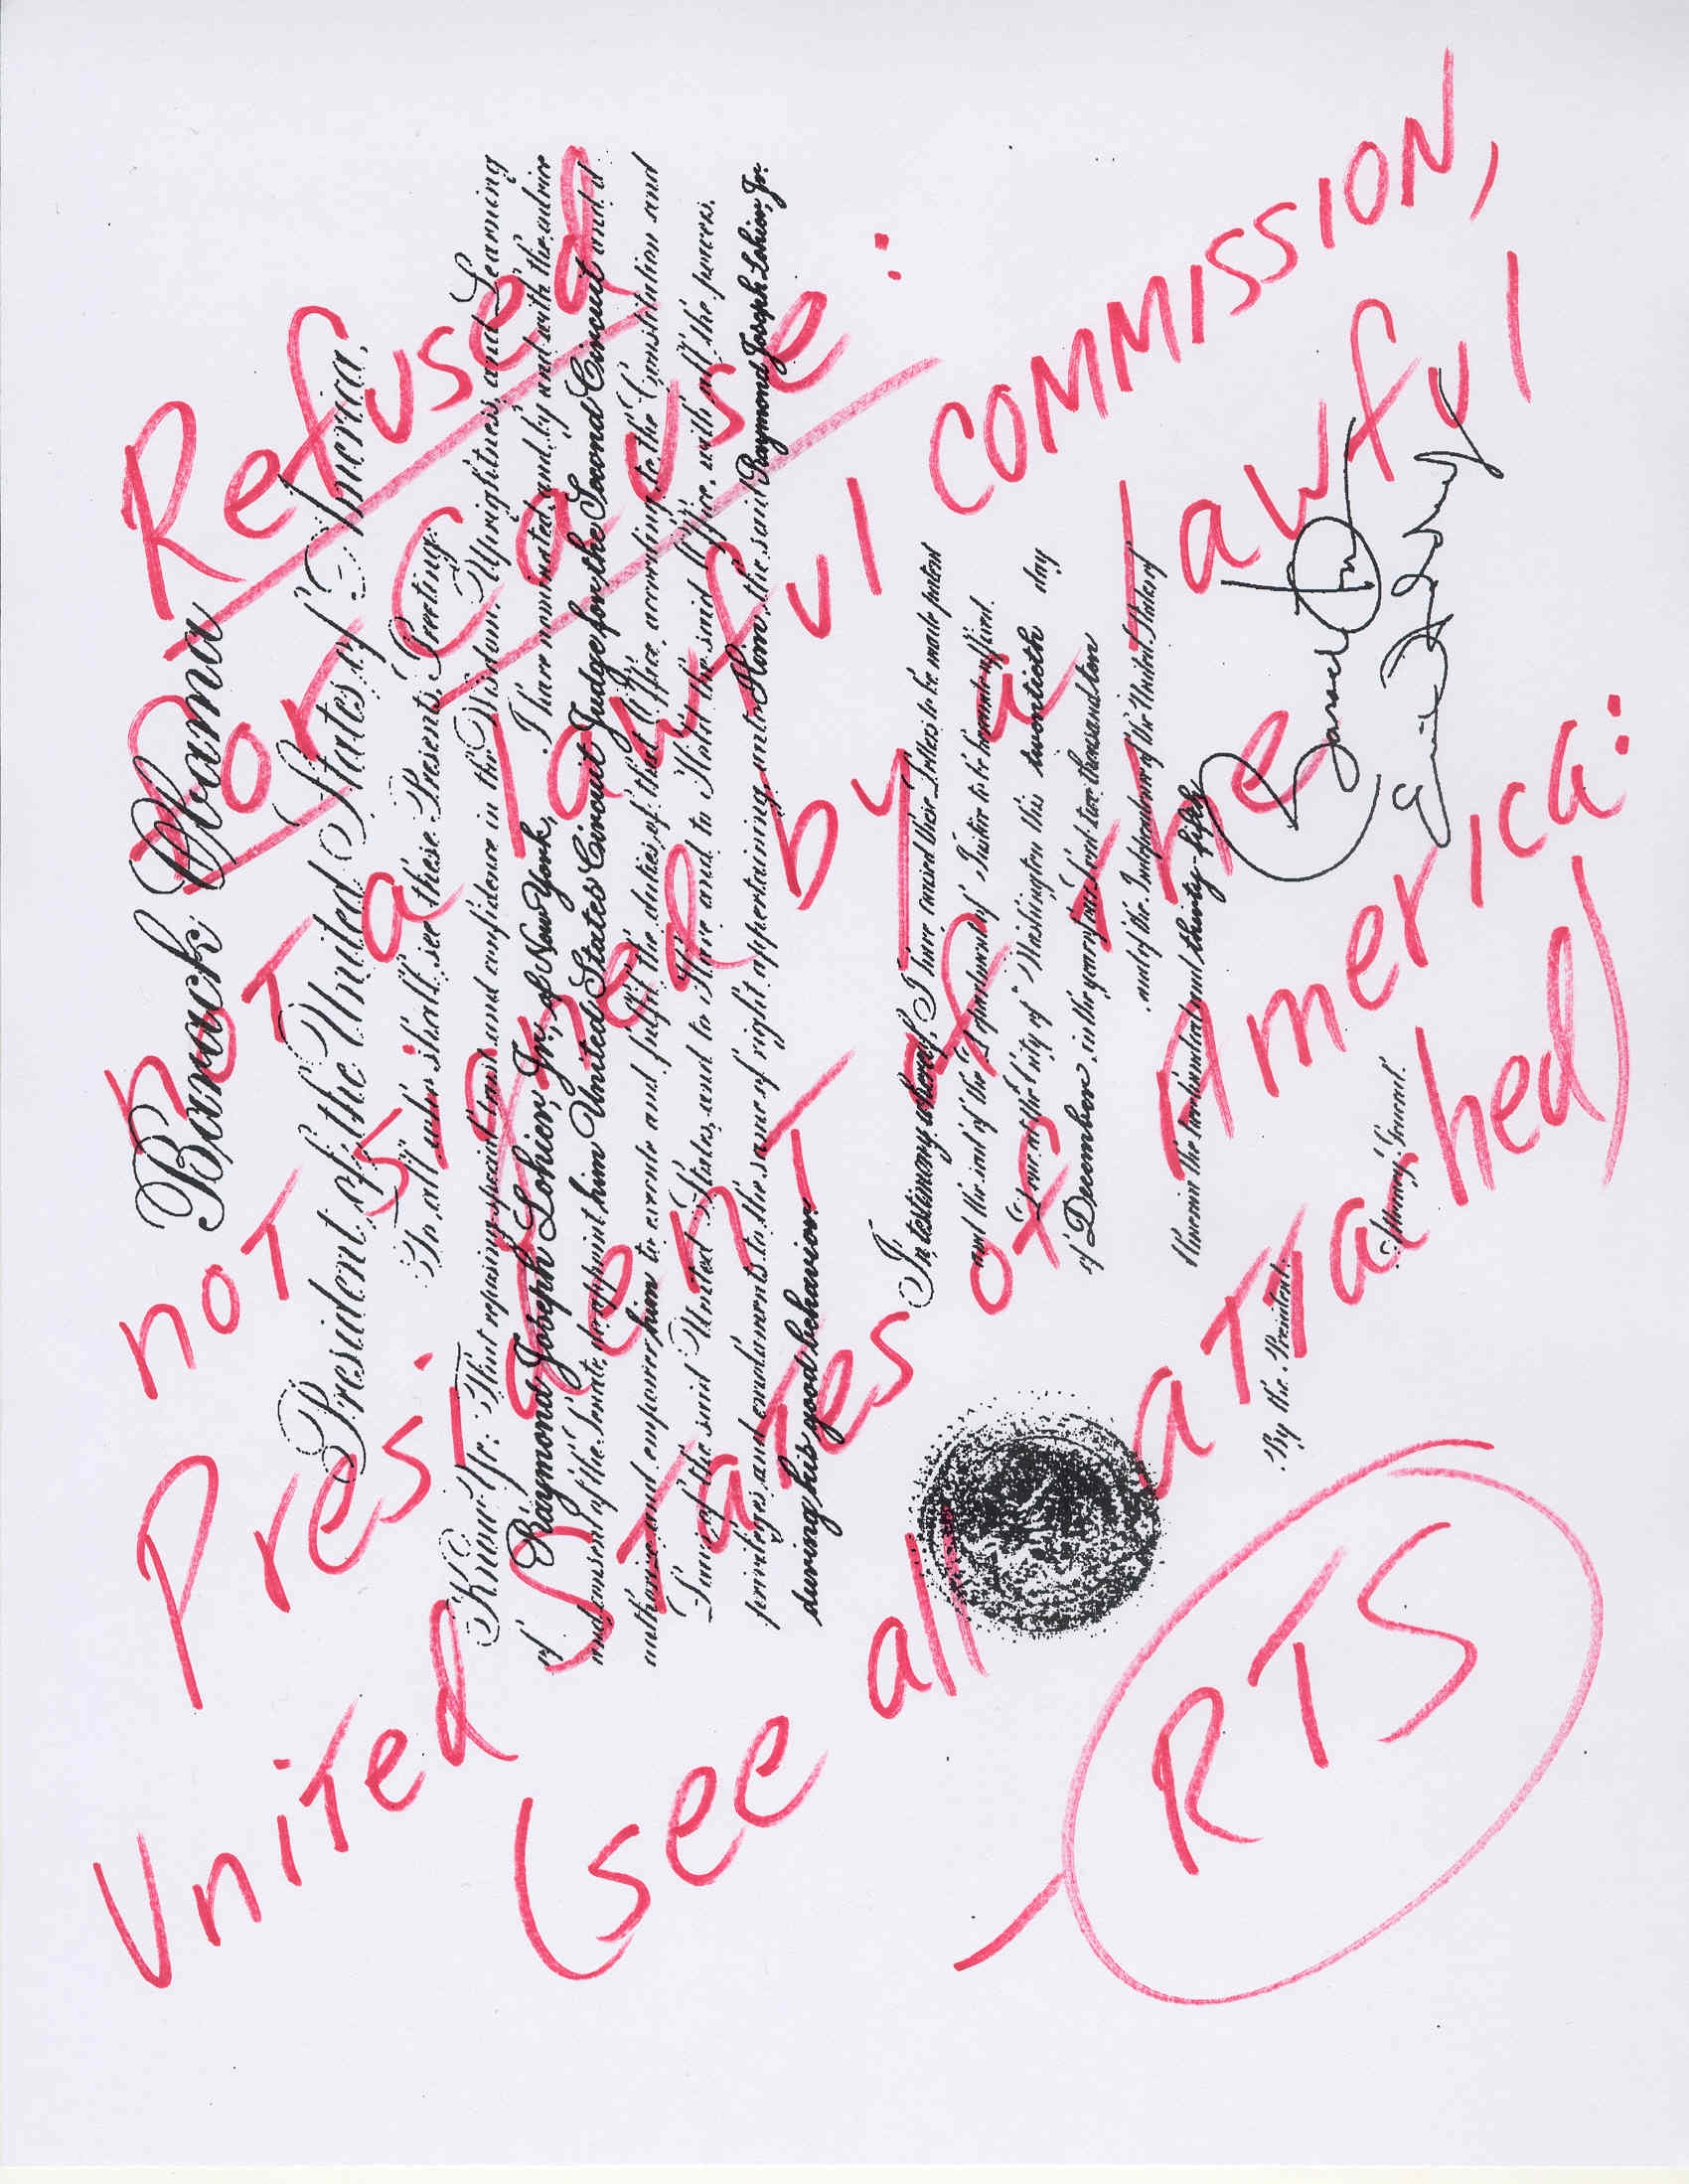 Barack Obama
President of the United States of America,
To all who shall see these Presents, Greeting:
Know Ye: That reposing special trust and confidence in the Wisdom, Uprightness, and Learning
of Raymond Joseph Lohier, Jr., of New York, I have nominated, and, by and with the advice
and consent of the Senate, do appoint him United States Circuit Judge for the Second Circuit and do
authorize and empower him to execute and fulfil the duties of that Office, according to the Constitution and
Laws of the said United States, and to Have and to Hold the said Office, with all the powers,
privileges, and emoluments to the same of right appertaining, unto Him, the said Raymond Joseph Lohier, Jr.
during his good behavior.
In testimony whereof, I have caused these Letters to be made patent
and the seal of the Department of Justice to be hereunto affixed.
Done at the City of Washington this twentieth day
of December, in the year of our Lord two thousand ten
and of the Independence of the United States of
America the two hundred and thirty-fifth.
Barack Obama
By the President:
Attorney General.
Refused
For Cause:
not a lawful COMMISSION,
not signed by a lawful
President of the
United States of America:
(see all attached)
RTS